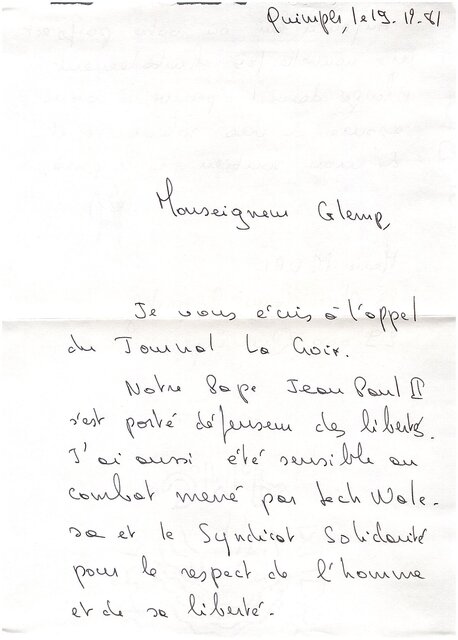 Quimper, le 19-12-81
Monseigneur Glemp,
Je vous écris à l'appel
du Journal La Croix.
Notre Pape Jean Paul II
s'est porté défenseur des libertés.
J'ai aussi été sensible au
combat mené par Lech Wale-
sa et le Syndicat Solidarité
pour le respect de l'homme
et de sa liberté.